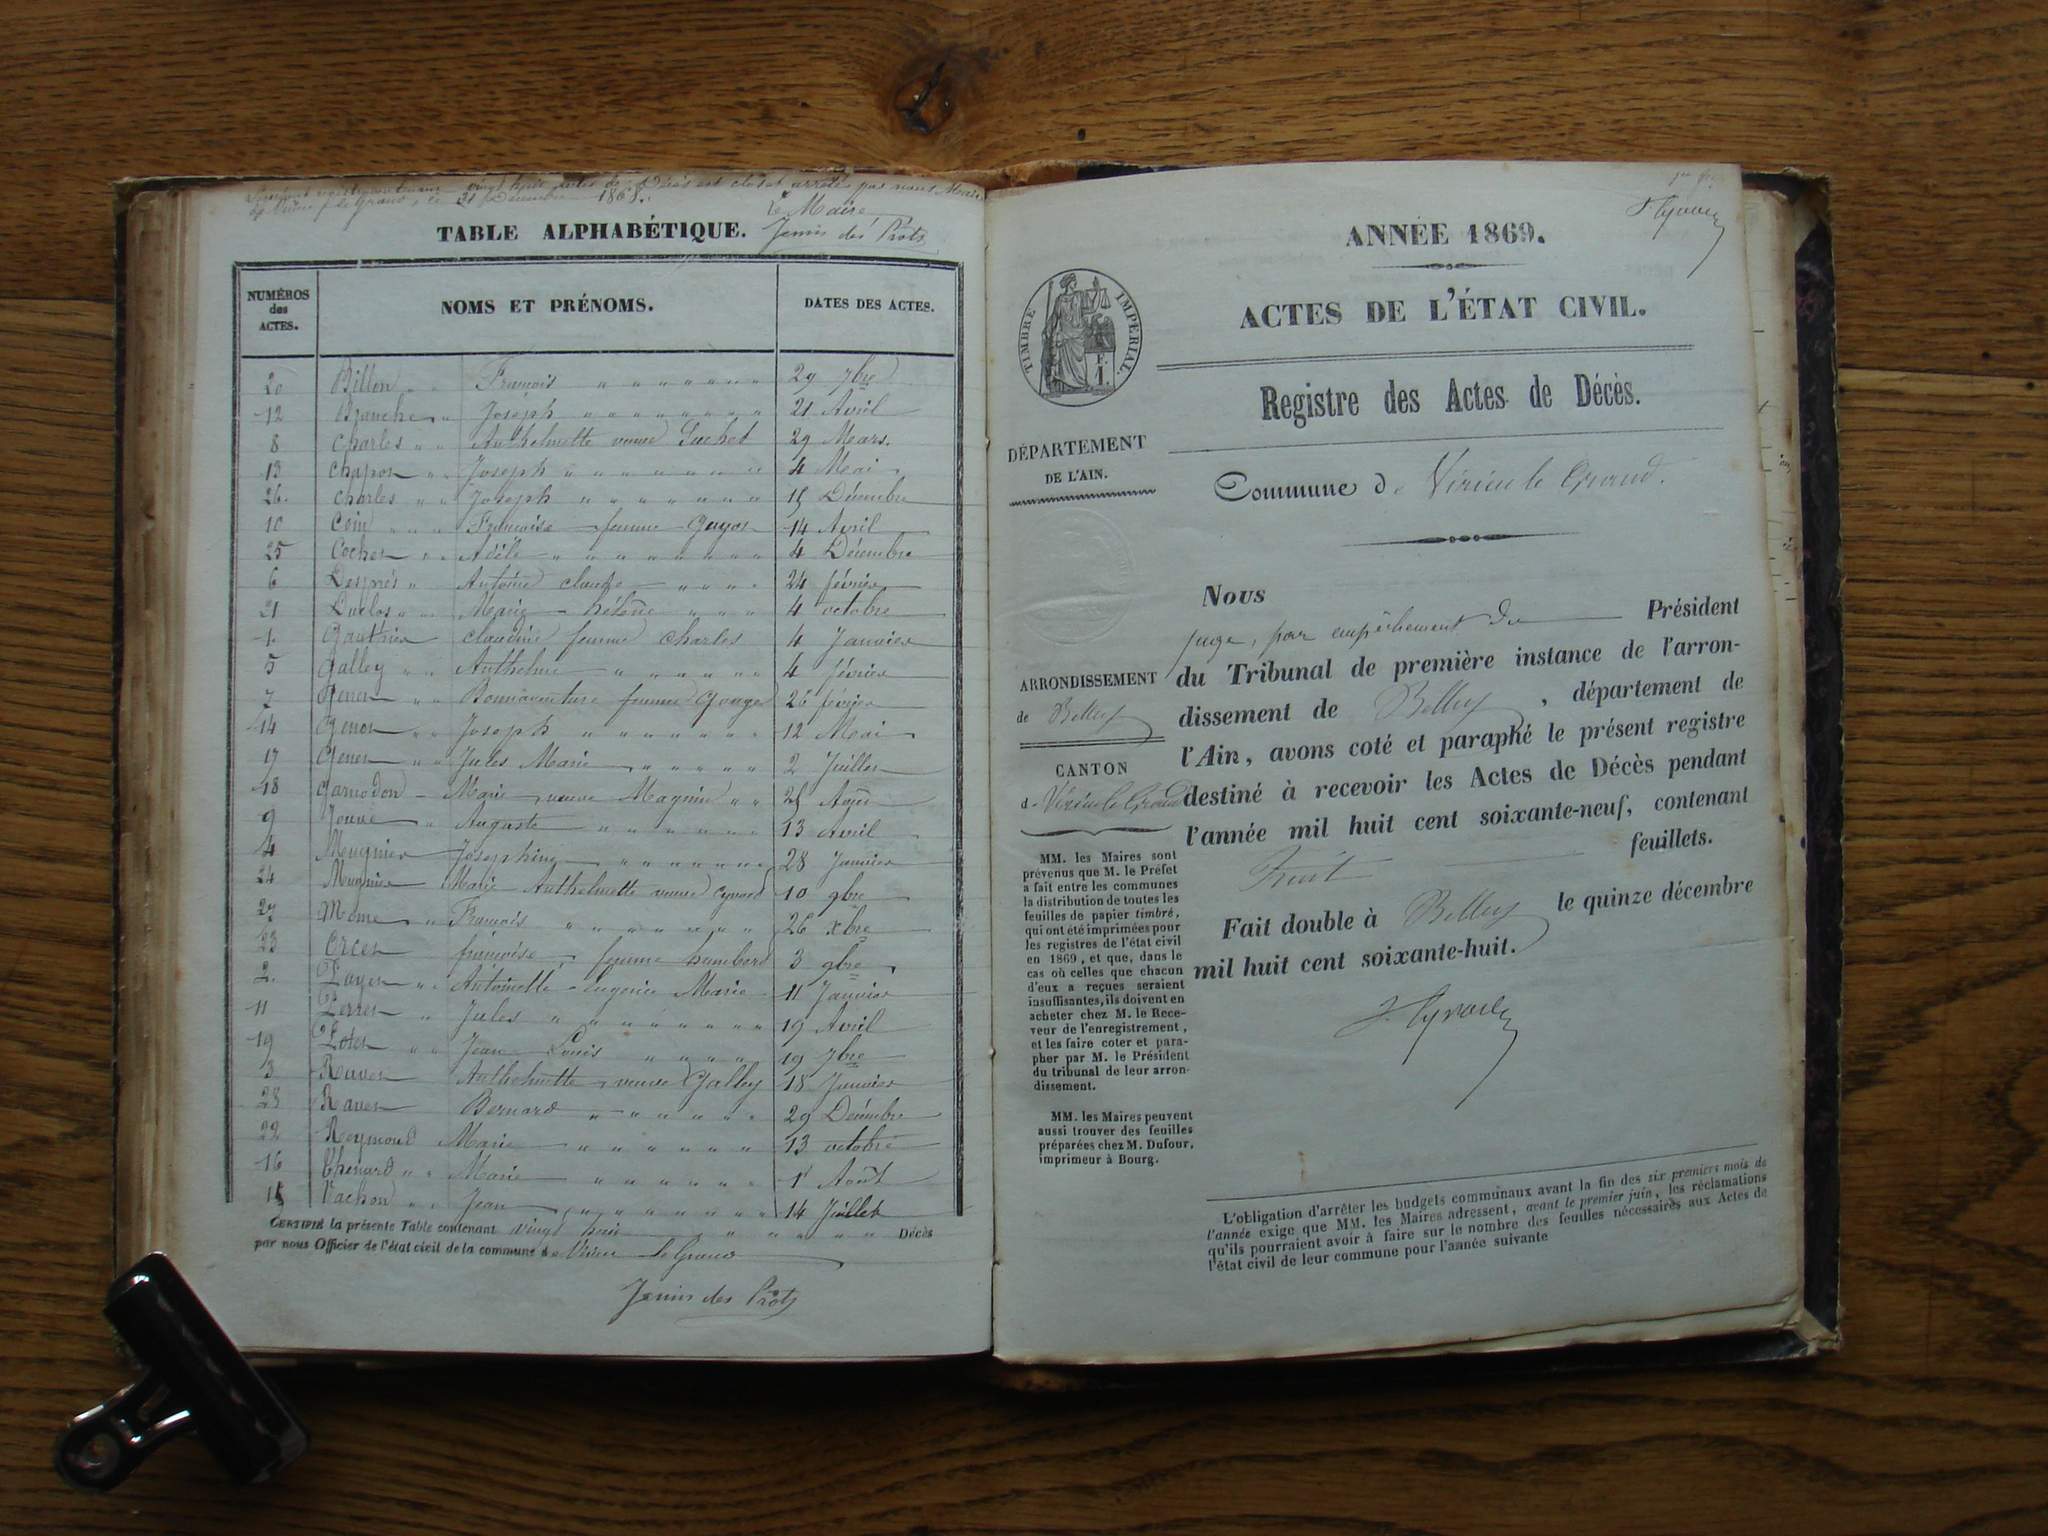 de Virieu le Grand, ce 31 Décembre 1868.
Le Maire
TABLE ALPHABÉTIQUE. Jenin des Prôts
NUMÉROS des ACTES. NOMS ET PRÉNOMS. DATES DES ACTES.
20 Billon " " François " " " " " " " 29 7bre
12 Blanche " Joseph " " " " " " " 21 Avril
8 Charles " " Anthelmette veuve Suchet 29 Mars.
13 Chapot " " Joseph " " " " " " " 4 Mai
26. Charles " " Joseph " " " " " " " 15 Décembre
10 Coin " " " Françoise femme Guyot 14 Avril
25 Cochet " " Adèle " " " " " " " 4 Décembre
6 Després " Antoine claude " " " " 24 février
21 Duclos " " Marie hélène " " " 4 octobre
1. Gauthier claudine femme charles 4 Janvier
5 Galley " " Anthelme " " " " " " 4 février
7 Genet " " Bonnaventure femme Gonger 26 février
14 Genet " " Joseph " " " " " " " 12 Mai
17 Genet " " Jules Marie " " " " " 2 Juillet
18 Garnodon Marie veuve Magnin " " 25 Août
9 Jouve " Auguste " " " " " " 13 Avril
4 Meugnier Joséphine " " " " " " 28 Janvier
24 Mugnier Marie Anthelmette veuve Cyvoct 10 9bre
27 Mome " François " " " " " " " 26 xbre
23 Orcet françoise, femme humbert 3 9bre
2. Payet " " Antoinette Eugénie Marie 11 Janvier
11 Perret " Jules " " " " " " " 19 Avril
19 Potet " " Jean Louis " " " " 19 7bre
3 Ravet Anthelmette veuve Galley 18 Janvier
28 Ravet Bernard " " " " " " 29 Décembre
22 Reymond Marie " " " " " " 13 octobre
16 Thenard " " Marie " " " " " " 1er Août
15 Vachon " " Jean " " " " " " " 14 Juillet
CERTIFIÉ la présente Table contenant vingt huit " " " " " Décès
par nous Officier de l'état civil de la commune de Virieu le Grand
Jenin des Prôts
ANNÉE 1869.
ACTES DE L'ÉTAT CIVIL.
TIMBRE IMPÉRIAL.
Registre des Actes de Décès.
DÉPARTEMENT
DE L'AIN.
Commune de Virieu le Grand.
ARRONDISSEMENT
de Belley
CANTON
de Virieu le Grand
MM. les Maires sont
prévenus que M. le Préfet
a fait entre les communes
la distribution de toutes les
feuilles de papier timbré,
qui ont été imprimées pour
les registres de l'état civil
en 1869, et que, dans le
cas où celles que chacun
d'eux a reçues seraient
insuffisantes, ils doivent en
acheter chez M. le Rece-
veur de l'enregistrement,
et les faire coter et para-
pher par M. le Président
du tribunal de leur arron-
dissement.
MM. les Maires peuvent
aussi trouver des feuilles
préparées chez M. Dufour,
imprimeur à Bourg.
Nous
juge, par empêchement du Président
du Tribunal de première instance de l'arron-
dissement de Belley, département de
l'Ain, avons coté et paraphé le présent registre
destiné à recevoir les Actes de Décès pendant
l'année mil huit cent soixante-neuf, contenant
huit feuillets.
Fait double à Belley le quinze décembre
mil huit cent soixante-huit.
L'obligation d'arrêter les budgets communaux avant la fin des six premiers mois de
l'année exige que MM. les Maires adressent, avant le premier juin, les réclamations
qu'ils pourraient avoir à faire sur le nombre des feuilles nécessaires aux Actes de
l'état civil de leur commune pour l'année suivante